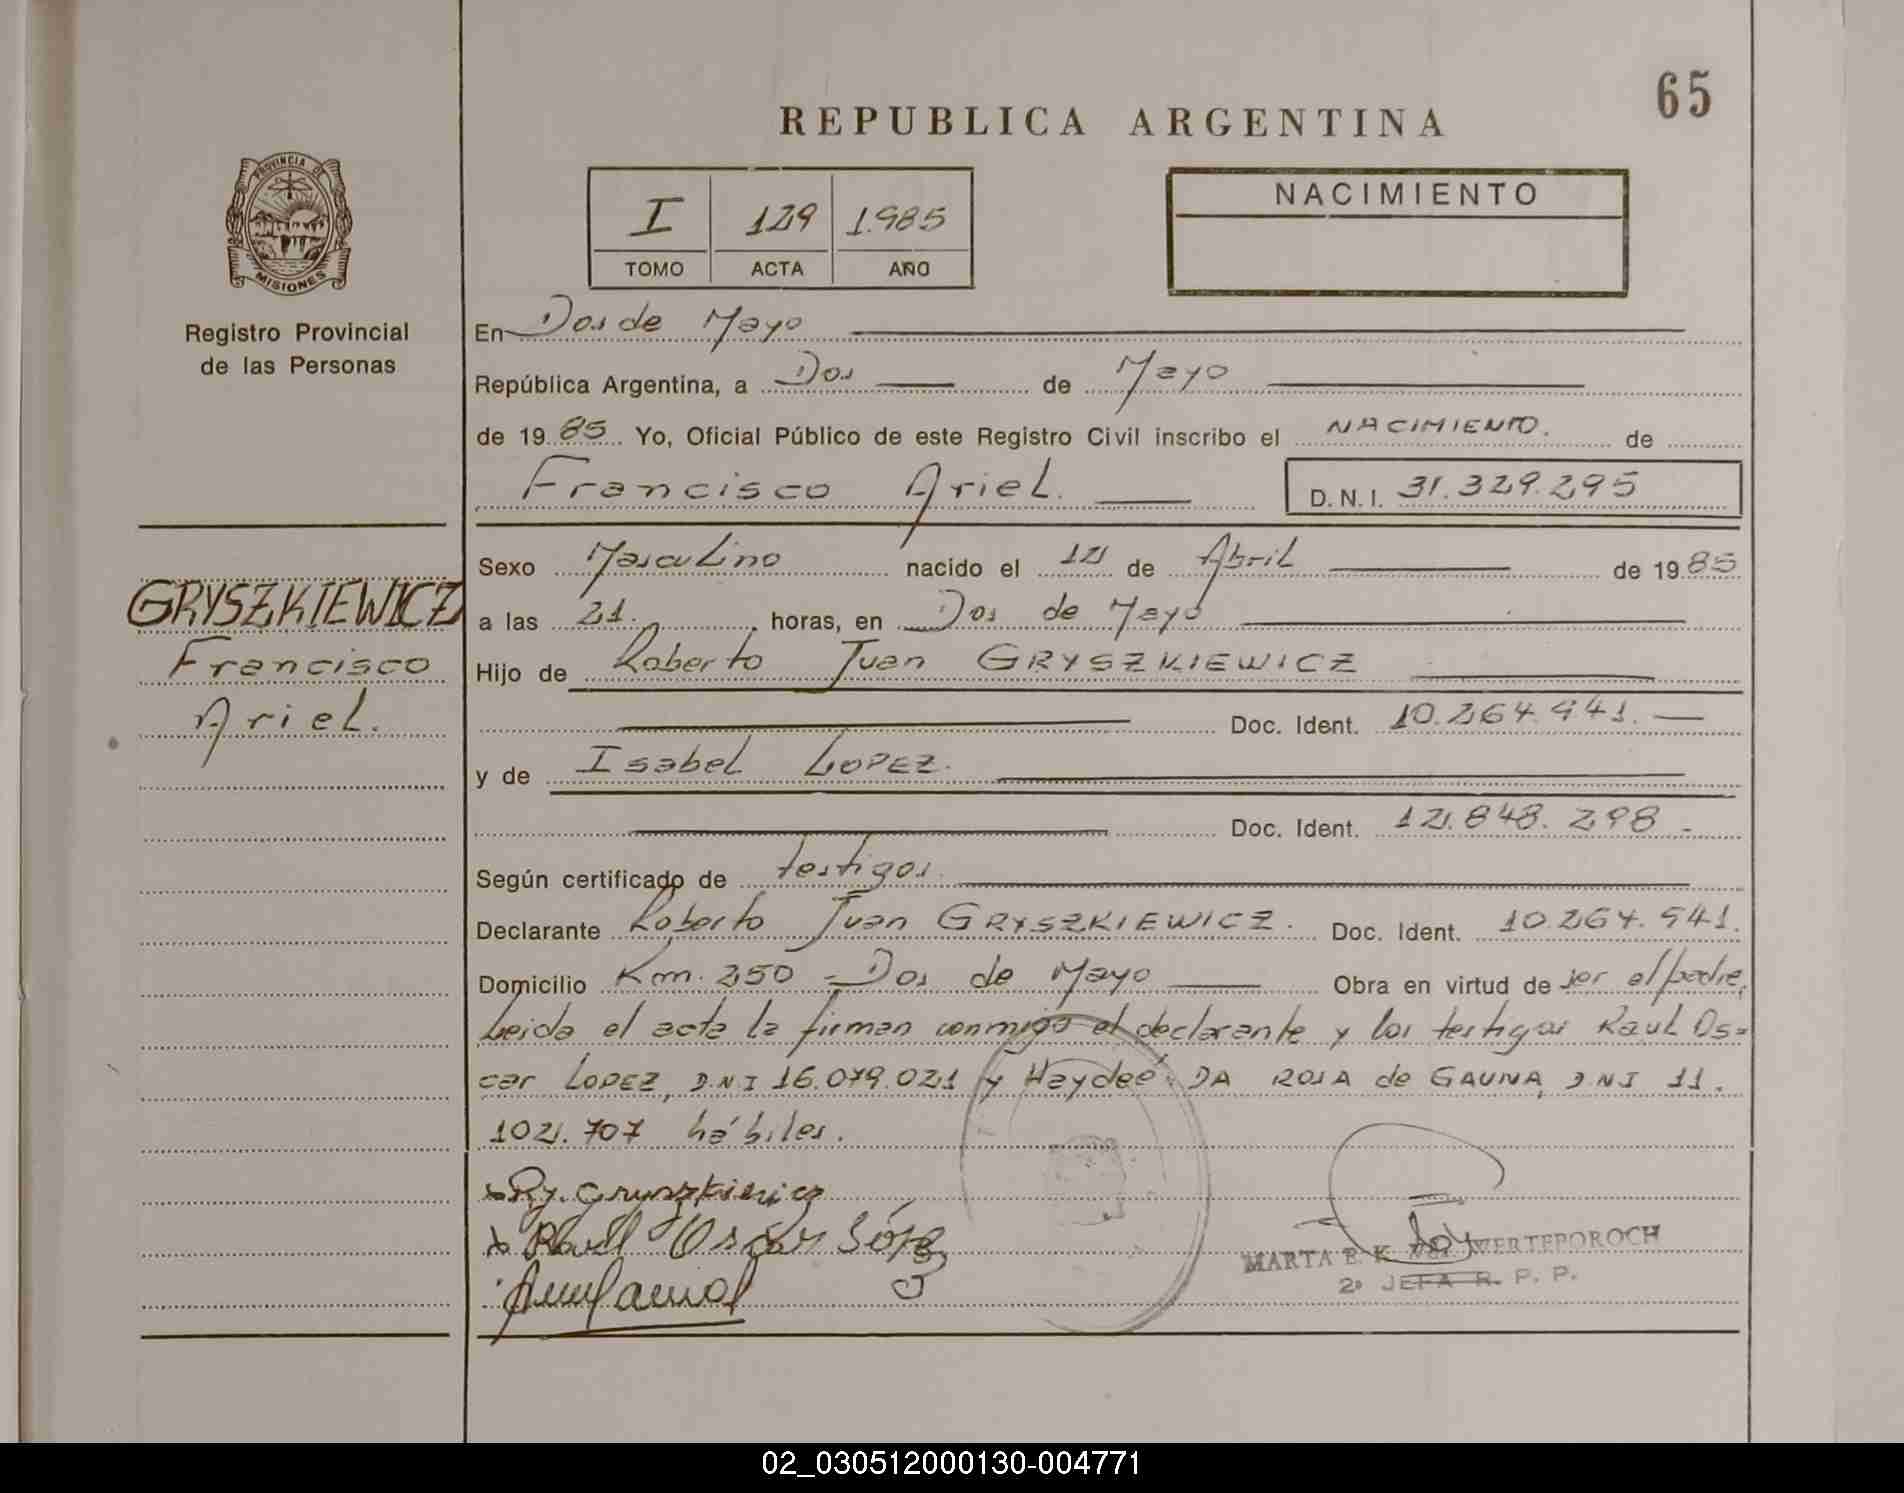 65
REPUBLICA ARGENTINA
PROVINCIA DE
MISIONES
Registro Provincial
de las Personas
I 129 1.985
TOMO ACTA AÑO
NACIMIENTO
En Dos de Mayo
República Argentina, a Dos de Mayo
de 1985 Yo, Oficial Público de este Registro Civil inscribo el NACIMIENTO. de
Francisco Ariel. D.N.I. 31.329.295
GRYSZKIEWICZ
Francisco
Ariel.
Sexo Masculino nacido el 12 de Abril de 1985
a las 21. horas, en Dos de Mayo
Hijo de Roberto Juan GRYSZKIEWICZ
Doc. Ident. 10.264.941.
y de Isabel LOPEZ.
Doc. Ident. 12.848.298
Según certificado de testigos.
Declarante Roberto Juan GRYSZKIEWICZ. Doc. Ident. 10.264.941.
Domicilio Km. 250 - Dos de Mayo Obra en virtud de ser el padre,
Leida el acta la firman conmigo el declarante y los testigos Raul Os=
car LOPEZ, D.N.I 16.079.021 y Haydeé DA ROSA de GAUNA, D.N.I 11.
102.707 hábiles.
R.J. Gryszkiewicz
Raul Oscar López
MARTA E. K. WERTEPOROCH
2º JEFA R. P. P.
02_030512000130-004771